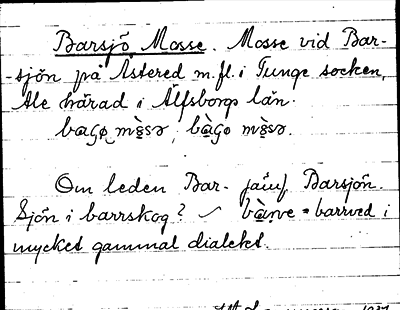 Barsjö Mosse. Mosse vid Bar-
-sjön på Åstered m.fl. i Tunge socken,
Ale härad i Älfsborgs län.
Om leden Bar- jämf Barsjön.
Sjön i barrskog? = barrved i
mycket gammal dialekt.